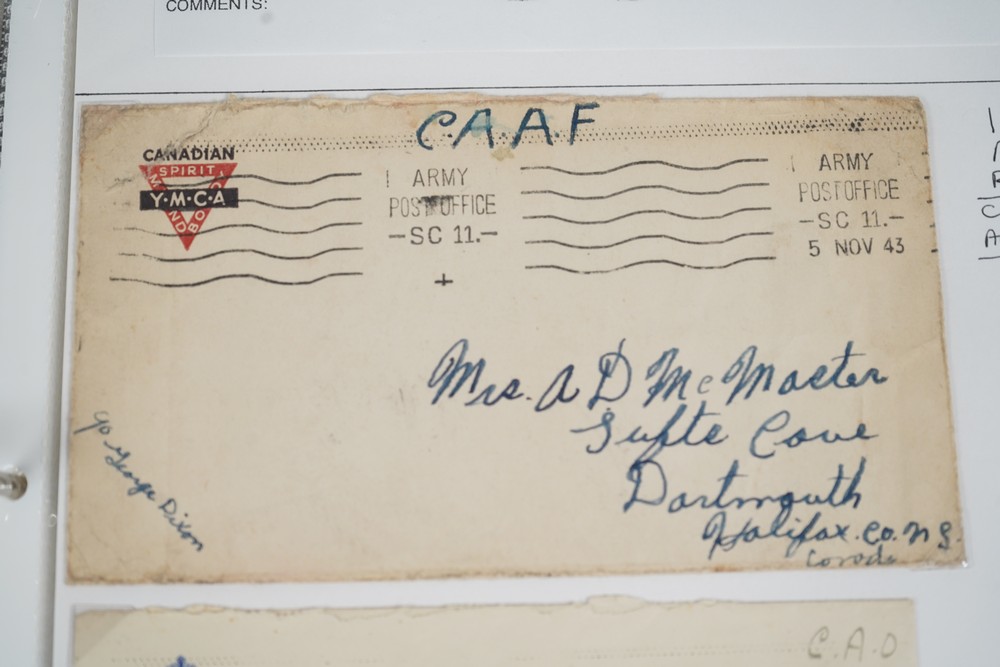 COMMENTS:
CAAF
CANADIAN
SPIRIT
Y·M·C·A
MIND BODY
ARMY
POST OFFICE
-SC 11.-
ARMY
POST OFFICE
-SC 11.-
5 NOV 43
Mrs. A D McMaster
Tufts Cove
Dartmouth
Halifax. Co. N S.
Canada
c/o George Dixon
C.A.O